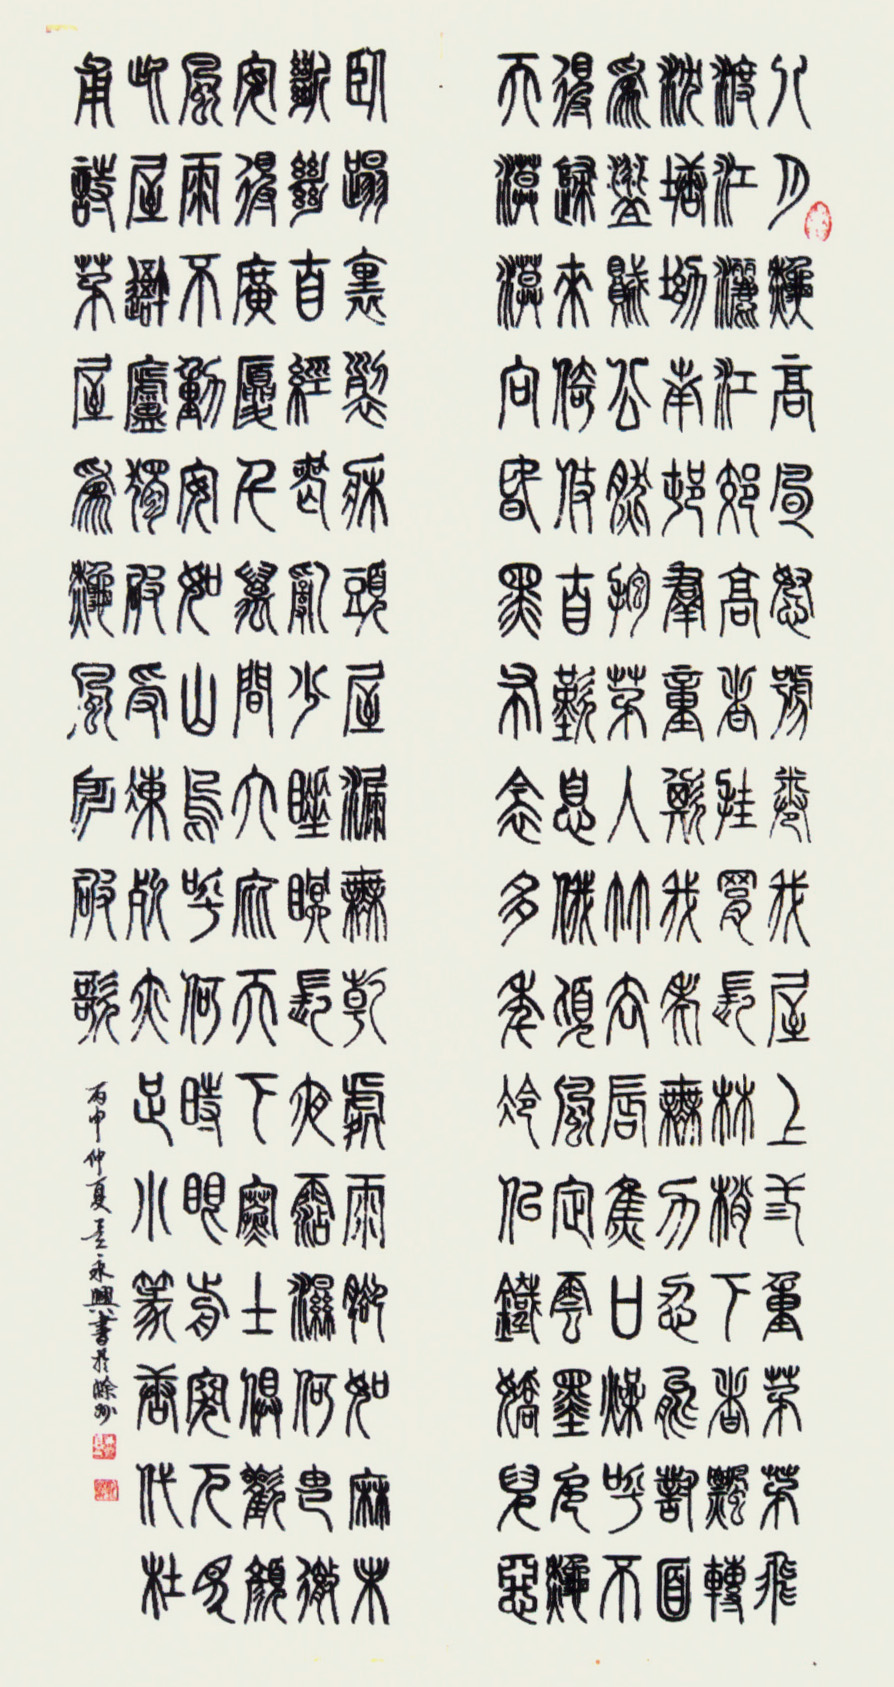 八月秋高風怒號卷我屋上三重茅茅飛
渡江灑江郊高者挂罥長林梢下者飄轉
沈塘坳南邨群童欺我老無力忍能對面
為盜賊公然抱茅入竹去唇焦口燥呼不
得歸來倚杖自歎息俄頃風定雲墨色秋
天漠漠向昏黑布衾多年冷似鐵嬌兒惡
臥蹋裏裂牀頭屋漏無乾處雨腳如麻未
斷絕自經喪亂少睡眠長夜霑濕何由徹
安得廣廈千萬間大庇天下寒士俱歡顏
風雨不動安如山烏呼何時眼前突兀見
此屋吾廬獨破受凍死亦足小篆唐代杜
甫詩茅屋為秋風所破歌
丙申仲夏吴永興書於滁州